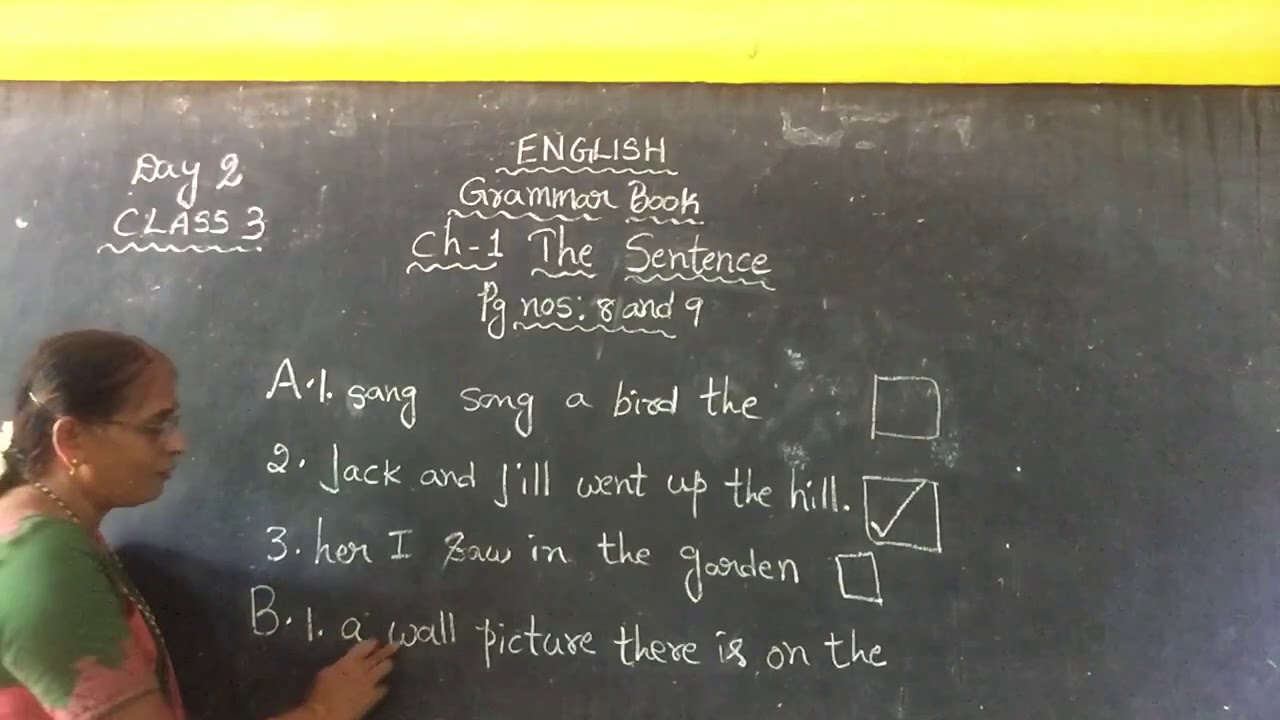 Day 2
CLASS 3
ENGLISH
Grammar Book
Ch-1 The Sentence
Pg nos: 8 and 9
A. 1. sang song a bird the
2. Jack and Jill went up the hill.
3. her I saw in the garden
B. 1. a wall picture there is on the